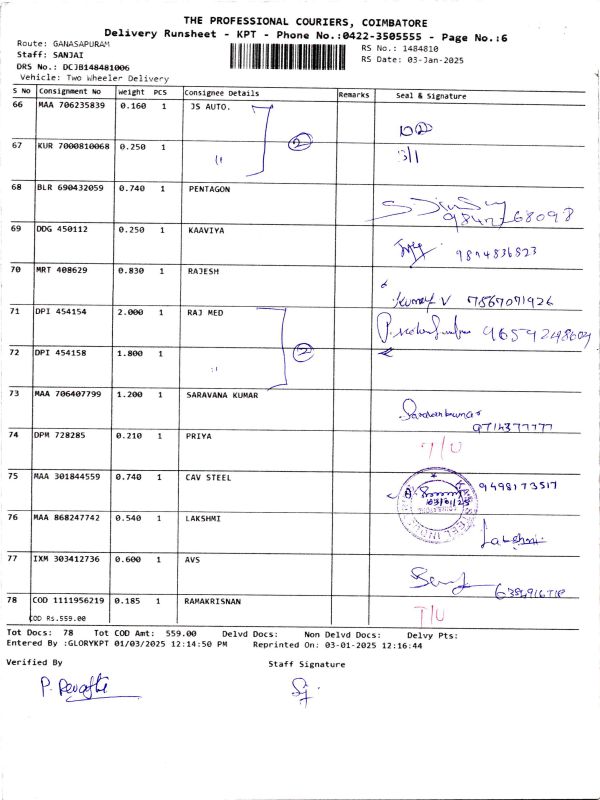 THE PROFESSIONAL COURIERS, COIMBATORE
Delivery Runsheet - KPT - Phone No.:0422-3505555 - Page No.:6
Route: GANASAPURAM
RS No.: 1484810
Staff: SANJAI
RS Date: 03-Jan-2025
DRS No.: DCJB148481006
Vehicle: Two Wheeler Delivery
S No Consignment No Weight PCS Consignee Details Remarks Seal & Signature
66 MAA 706235839 0.160 1 JS AUTO.
2
67 KUR 7000810068 0.250 1 " 3/1
68 BLR 690432059 0.740 1 PENTAGON
69 DDG 450112 0.250 1 KAAVIYA 9894836823
70 MRT 408629 0.830 1 RAJESH
Kumar V 7867071926
71 DPI 454154 2.000 1 RAJ MED
2
72 DPI 454158 1.800 1 "
73 MAA 706407799 1.200 1 SARAVANA KUMAR
74 DPM 728285 0.210 1 PRIYA T/U
75 MAA 301844559 0.740 1 CAV STEEL 9498173517
76 MAA 868247742 0.540 1 LAKSHMI Lakshmi
77 IXM 303412736 0.600 1 AVS
78 COD 1111956219 0.185 1 RAMAKRISNAN T/U
COD Rs.559.00
Tot Docs: 78 Tot COD Amt: 559.00 Delvd Docs: Non Delvd Docs: Delvy Pts:
Entered By :GLORYKPT 01/03/2025 12:14:50 PM Reprinted On: 03-01-2025 12:16:44
Verified By Staff Signature